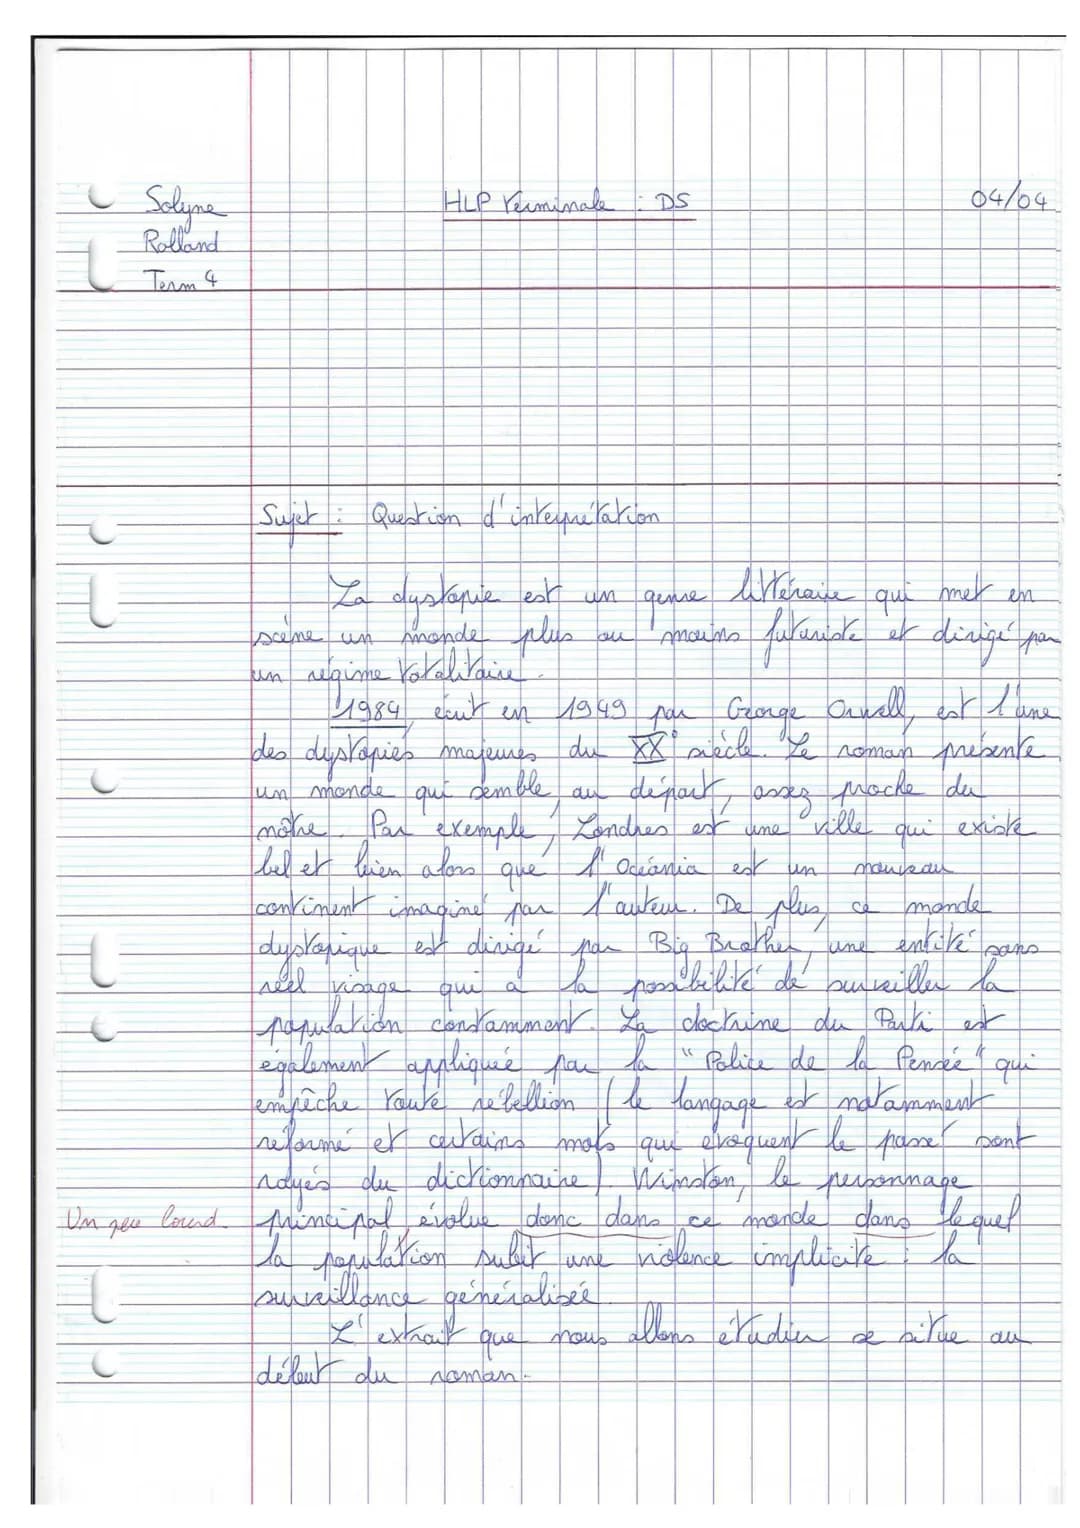 Solyne
Rolland
Term 4
HLP Terminale : DS
04/04
Sujet : Question d'interprétation
La dystopie est un genre littéraire qui met en
scène un monde plus ou moins futuriste et dirigé par
un régime totalitaire.
1984, écrit en 1949 par George Orwell, est l'une
des dystopies majeures du XX° siècle. Le roman présente
un monde qui semble, au départ, assez proche du
nôtre. Par exemple, Londres est une ville qui existe
bel et bien alors que l'Océania est un nouveau
continent imaginé par l'auteur. De plus, ce monde
dystopique est dirigé par Big Brother, une entité sans
réel visage qui a la possibilité de surveiller la
population constamment. La doctrine du Parti est
également appliquée par la "Police de la Pensée" qui
empêche toute rébellion (le langage est notamment
réformé et certains mots qui évoquent le passé sont
rayés du dictionnaire). Winston, le personnage
Un peu lourd principal, évolue donc dans ce monde dans lequel
la population subit une violence implicite : la
surveillance généralisée.
L'extrait que nous allons étudier se situe au
début du roman.